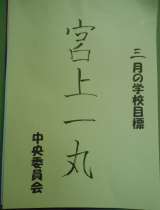 三月の学校目標
宮上一丸
中央委員会